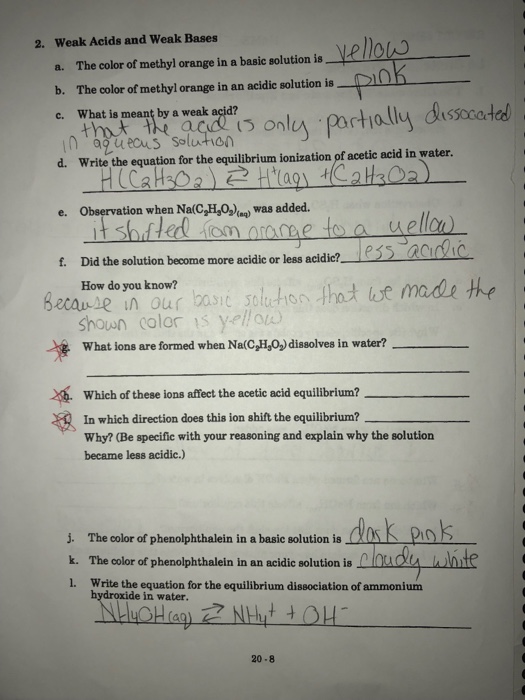 2. Weak Acids and Weak Bases
a. The color of methyl orange in a basic solution is yellow
b. The color of methyl orange in an acidic solution is pink
c. What is meant by a weak acid?
that the acid is only partially dissocated
in aqueous solution
d. Write the equation for the equilibrium ionization of acetic acid in water.
H(C2H3O2) ⇄ H+(aq) + (C2H3O2)
e. Observation when Na(C₂H₃O₂)(aq) was added.
it shifted from orange to a yellow
f. Did the solution become more acidic or less acidic? less acidic
How do you know?
Because in our basic solution that we made the
shown color is yellow
g. What ions are formed when Na(C₂H₃O₂) dissolves in water?
h. Which of these ions affect the acetic acid equilibrium?
i. In which direction does this ion shift the equilibrium?
Why? (Be specific with your reasoning and explain why the solution
became less acidic.)
j. The color of phenolphthalein in a basic solution is dark pink
k. The color of phenolphthalein in an acidic solution is cloudy white
l. Write the equation for the equilibrium dissociation of ammonium
hydroxide in water.
NH4OH(aq) ⇄ NH4+ + OH-
20-8